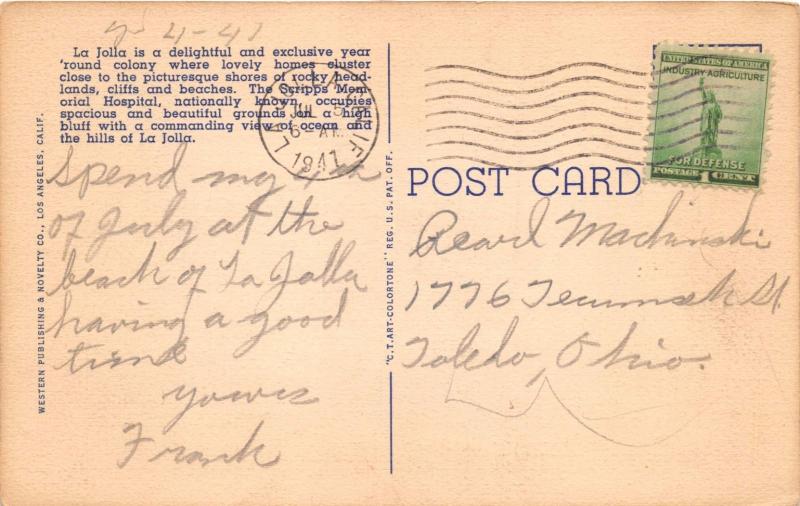 7-4-41
La Jolla is a delightful and exclusive year
'round colony where lovely homes cluster
close to the picturesque shores of rocky head-
lands, cliffs and beaches. The Scripps Mem-
orial Hospital, nationally known, occupies
spacious and beautiful grounds on a high
bluff with a commanding view of ocean and
the hills of La Jolla.
Spend my 4th
of July at the
beach of La Jolla
having a good
time
yours
Frank
WESTERN PUBLISHING & NOVELTY CO., LOS ANGELES, CALIF.
"C.T. ART-COLORTONE" REG. U.S. PAT. OFF.
JUL 5
6 AM
1941
UNITED STATES OF AMERICA
INDUSTRY AGRICULTURE
FOR DEFENSE
POSTAGE 1 CENT
POST CARD
Machinski
1776 Tecumseh St.
Toledo, Ohio.